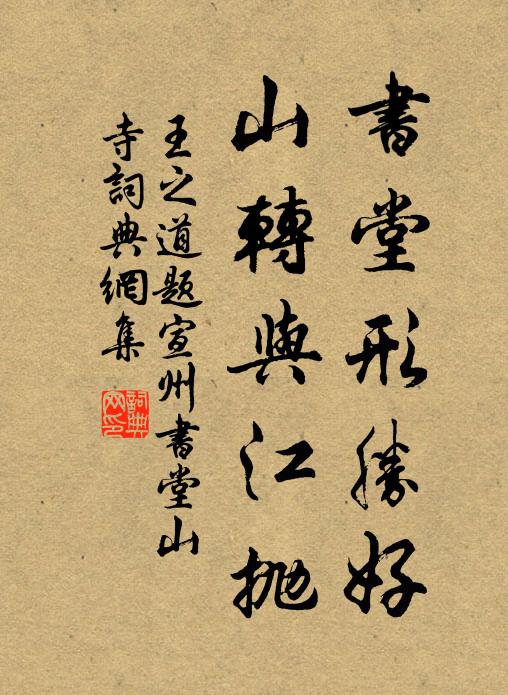 書堂形勝好
山轉與江拋
王之道题宣州書堂山
寺詞典網集
詞典网印